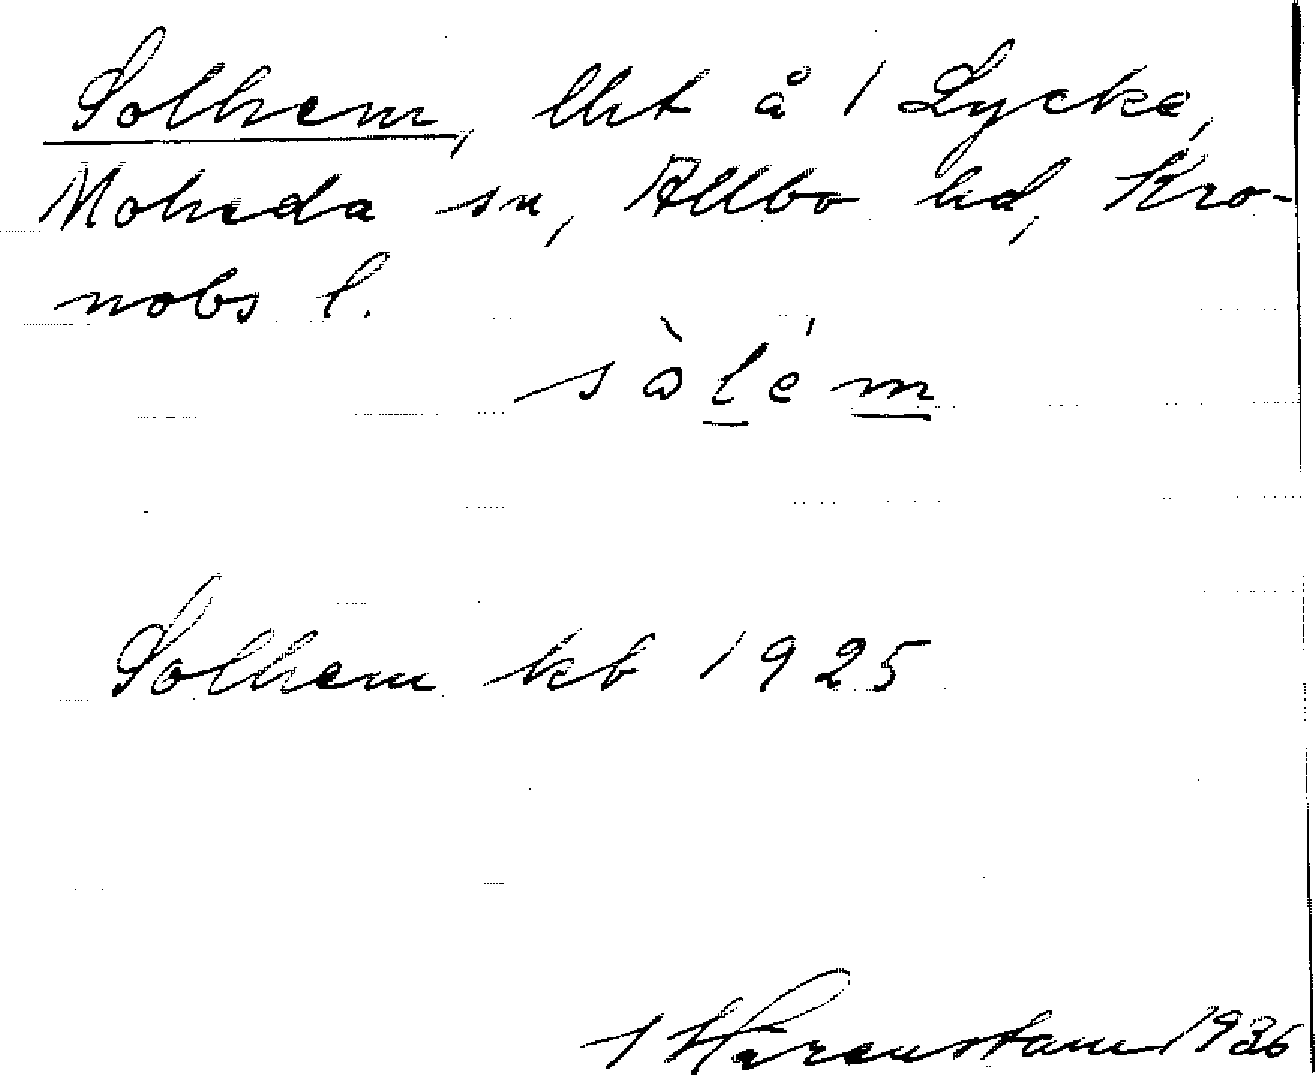 Solhem, lht å 1 Lycke,
Moheda sn, Allbo hd, Kro-
nobs l.
sàlém
Solhem kb 1925
Härenstam 1936